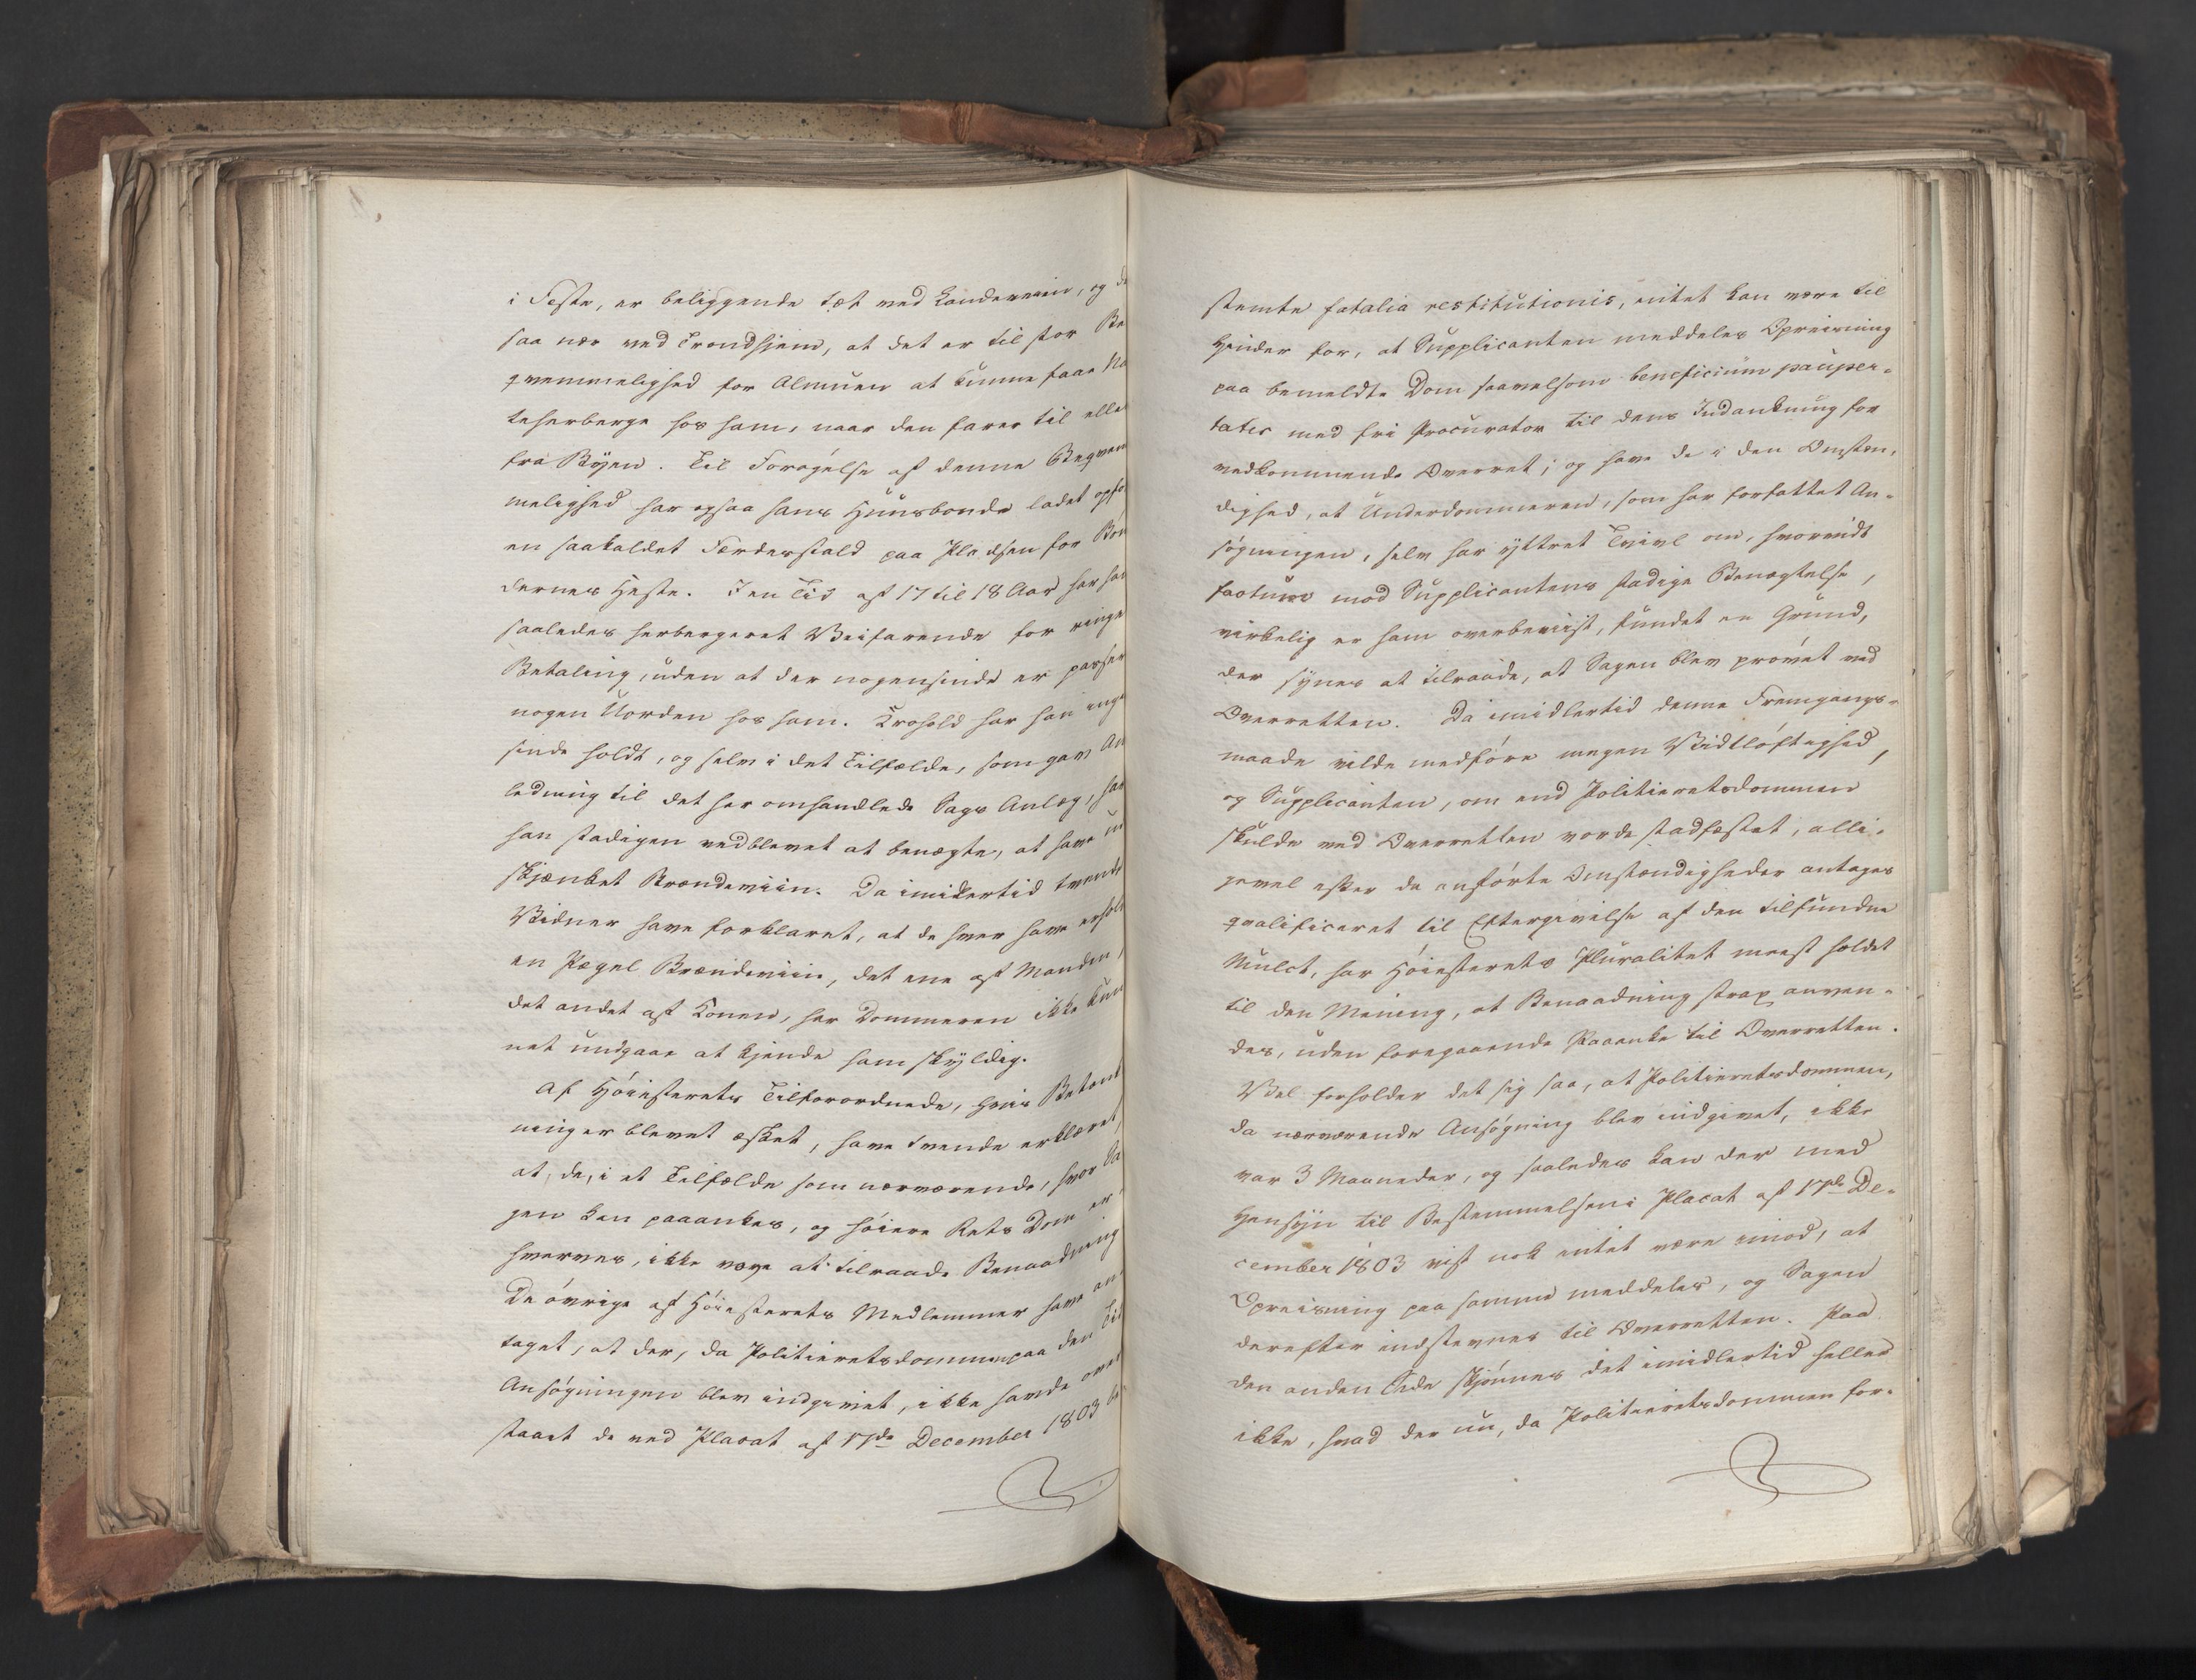 i Feste, er beliggende tæt ved Landeveien, og de
saa nær ved Trondhjem, at det er til stor Be
qvemmelighed for Almuen at kunne faae Na
teherberge hos ham, naar den farer til elle
fra Byen. Til Forøgelse af denne Beqvem
melighed har ogsaa hans Huusbonde ladet opfø
en saakaldet Ferdesstald paa Pladsen for Bøn
dernes Heste. I en Tid af 17 til 18 Aar har han
saaledes herbergeret Veifarende for ringe
Betaling, uden at der nogensinde er passer
nogen Uorden hos ham. Krohold har han inge
sinde holdt, og selv i det Tilfælde, som gav An
ledning til det her omhandlede Sags Anlæg, har
han stadigen vedblevet at benægte, at have ud
skjænket Brændeviin. Da imidlertid tvende
Vidner have forklaret, at de hver have erhold
en Pægel Brændeviin, det ene af Manden,
det andet af Konen, har Dommeren ikke kun
net undgaae at kjende ham skyldig.
Af Høiesterets Tilforordnede, hvis Betænk
ning er blevet æsket, have tvende erklæret,
at, de, i et Tilfælde som nærværende, hvor Sa
gen kan paaankes, og høiere Rets Dom er
hverves, ikke vove at tilraade Benaadning
De øvrige af Høiesterets Medlemmer have an
taget, at der, da Politieretsdommen paa den Tid
Ansøgningen blev indgivet, ikke havde over
staaet de ved Placat af 17de December 1803 be
stemte fatalia restitutionis, intet kan være til
Hinder for, at Supplicanten meddeles Opreisning
paa bemeldte Dom saavelsom beneficium pauper-
tatis med fri Procurator til dens Indankning for
vedkommende Overret; og have de i den Omstæn,
dighed, at Underdommeren, som har forfattet An-
søgningen, selv har yttret Tvivl om, hvorvidt
factum mod Supplicantens stadige Benægtelse,
virkelig er ham overbeviist, fundet en Grund,
der synes at tilraade, at Sagen blev prøvet ved
Overretten. Da imidlertid denne Fremgangs-
maade vilde medføre megen Vidtløftighed,
og Supplicanten, om end Politieretsdommen
skulde ved Overretten vorde stadfæstet, alli-
gevel efter de anførte Omstændigheder antages
qvalificeret til Eftergivelse af den tilfundne
Mulct, har Høiesterets Pluralitet meest holdet
til den Mening, at Benaadning strax anven-
des, uden foregaaende Paaanke til Overretten.
Vel forholder det sig saa, at Politieretsdommen,
da nærværende Ansøgning blev indgivet, ikke
var 3 Maaneder, og saaledes kan der med
Hensyn til Bestemmelsen i Placat af 17de De-
cember 1803 vist nok intet være imod, at
Opreisning paa samme meddeles, og Sagen
derefter indstevnes til Overretten. Paa
den anden Side skjønnes det imidlertid heller
ikke, hvad der nu, da Politieretsdommen for-